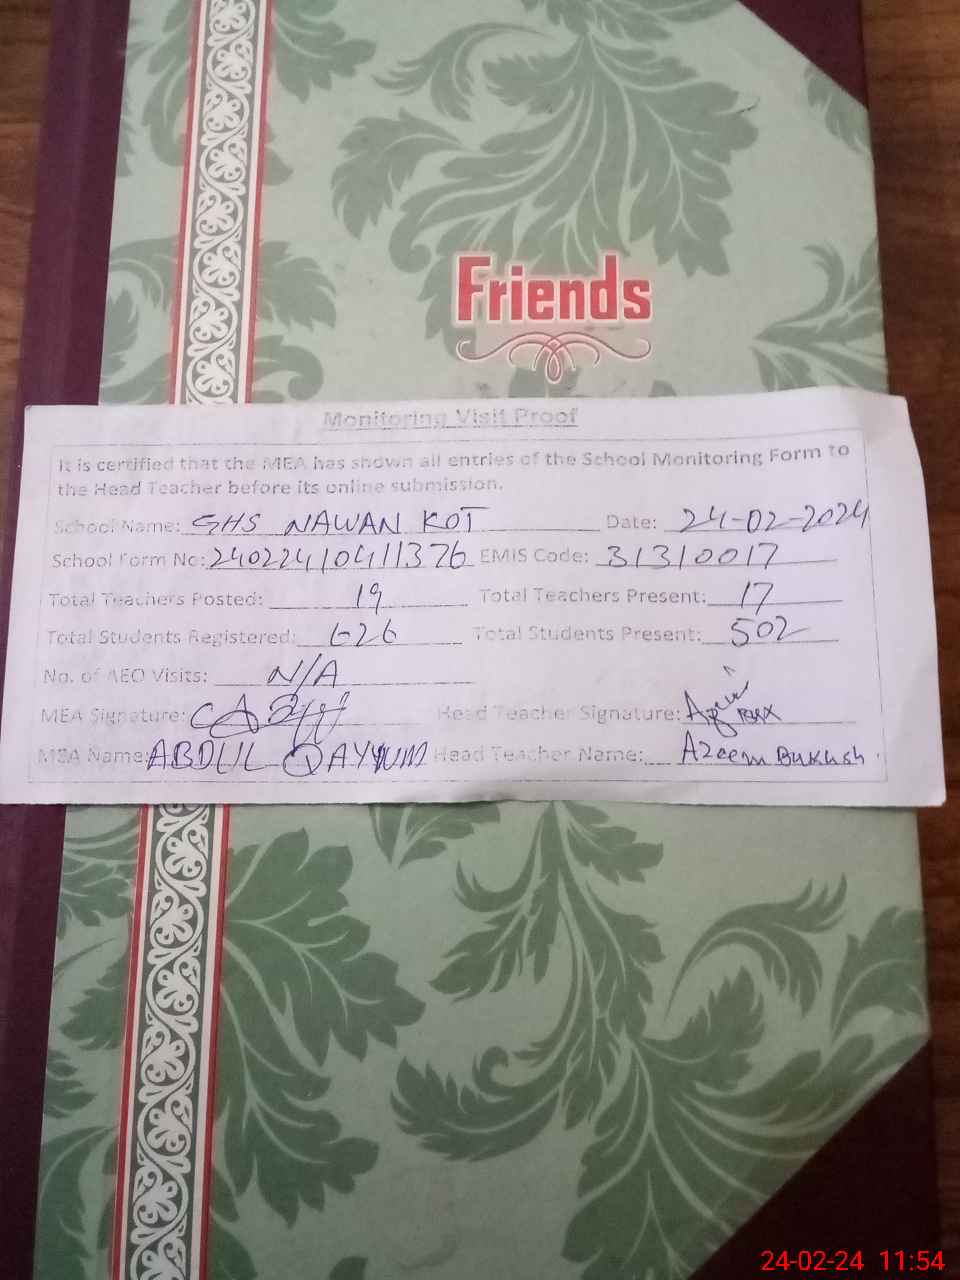 Friends
Monitoring Visit Proof
It is certified that the MEA has shown all entries of the School Monitoring Form to
the Head Teacher before its online submission.
School Name: GHS NAWAN KOT Date: 24-02-2024
School Form No: 24022410411376 EMIS Code: 31310017
Total Teachers Posted: 19 Total Teachers Present: 17
Total Students Registered: 626 Total Students Present: 502
No. of AEO Visits: N/A
MEA Signature: Head Teacher Signature:
MEA Name: ABDUL QAYYUM Head Teacher Name: Azeem Bukhsh
24-02-24 11:54